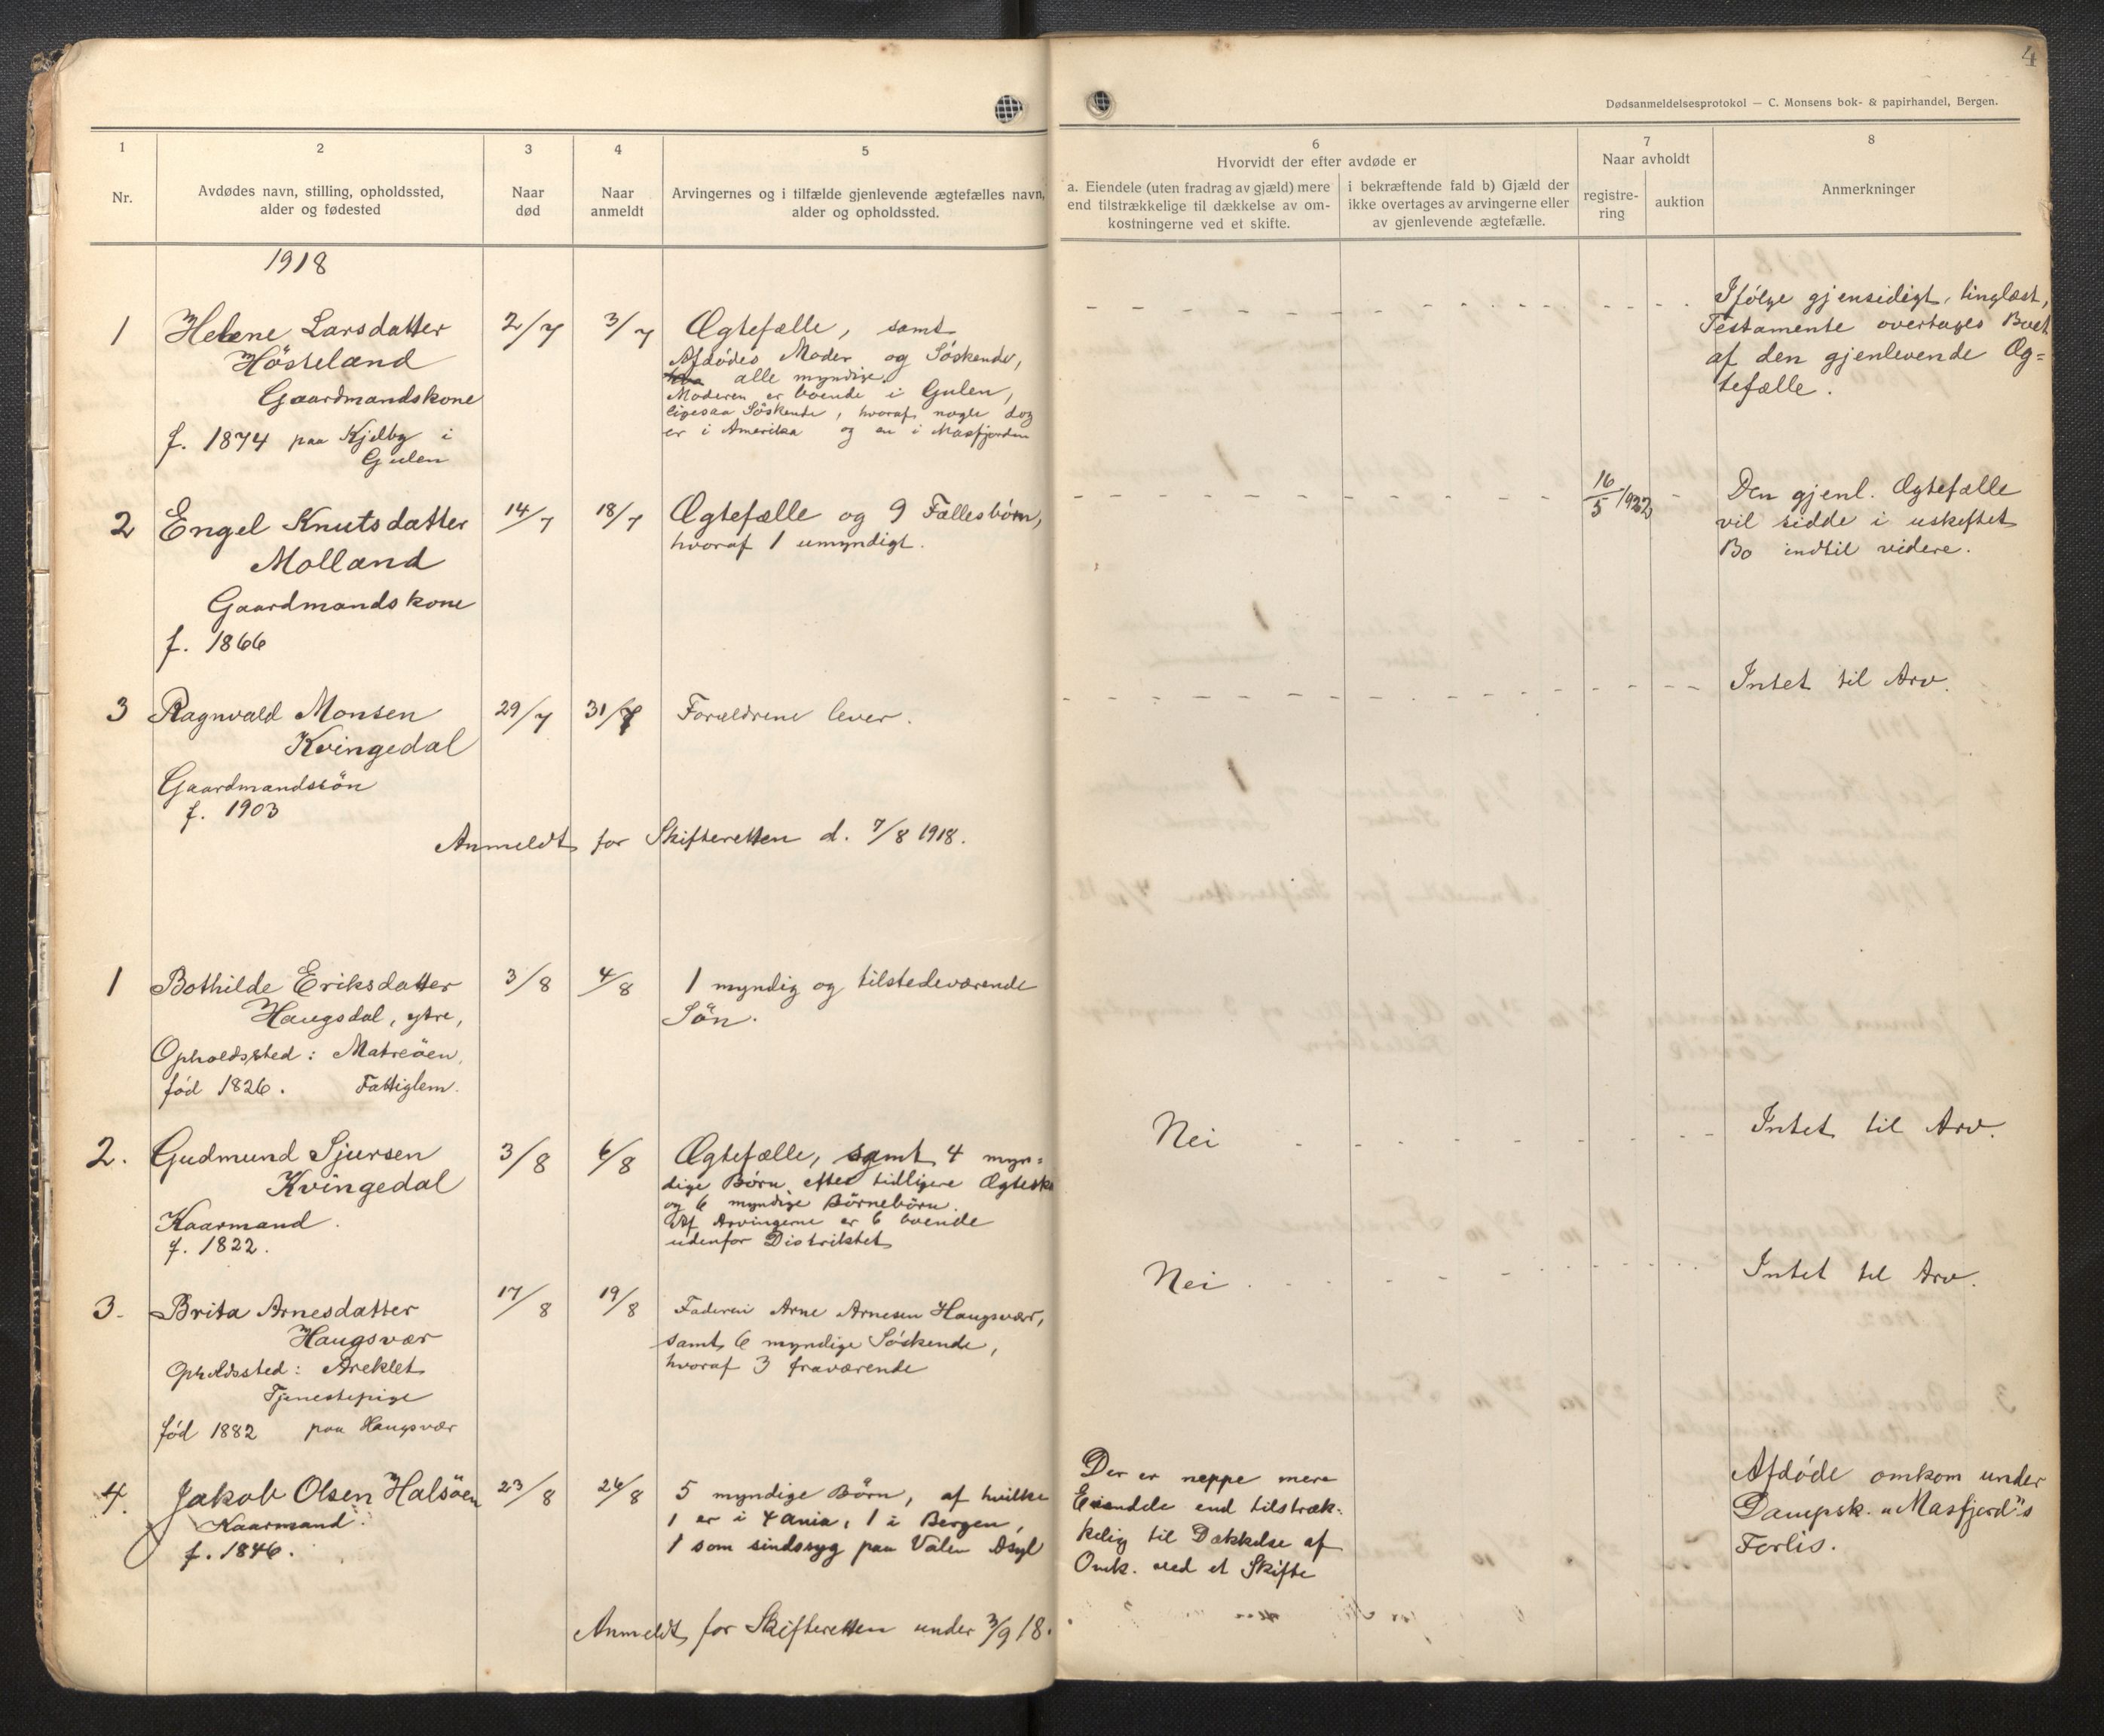 4
Dødsanmeldelsesprotokol — C. Monsens bok- & papirhandel, Bergen.
1
Nr.
2
Avdødes navn, stilling, opholdssted,
alder og fødested
3
Naar
død
4
Naar
anmeldt
5
Arvingernes og i tilfælde gjenlevende ægtefælles navn,
alder og opholdssted.
6
Hvorvidt der efter avdøde er
a. Eiendele (uten fradrag av gjæld) mere
end tilstrækkelige til dækkelse av om-
kostningerne ved et skifte.
i bekræftende fald b) Gjæld der
ikke overtages av arvingerne eller
av gjenlevende ægtefælle.
7
Naar avholdt
registre-
ring
auktion
8
Anmerkninger
1918
1
Helene Larsdatter
Hösteland
Gaardmandskone
f. 1874 paa Kjelby i
Gulen
2/7
3/7
Ægtefælle, samt
Afdødes Moder og Søskende,
alle myndige.
Moderen er boende i Gulen,
ligesaa Söskende, hvoraf nogle dog
er i Amerika og en i Masfjorden
Ifölge gjensidigt, tinglæst,
Testamente overtages Boet
af den gjenlevende Æg=
tefælle.
2
Engel Knutsdatter
Molland
Gaardmandskone
f. 1866
14/7
18/7
Ægtefælle og 9 Fællesbörn,
hvoraf 1 umyndigt.
16/5 1922
Den gjenl. Ægtefælle
vil sidde i uskiftet
Bo indtil videre.
3
Ragnvald Monsen
Kvingedal
Gaardmandssön
f. 1903
29/7
31/7
Forældrene lever.
Intet til Arv.
Anmeldt for Skifteretten d. 7/8 1918.
1
Bothilde Eriksdatter
Haugsdal, ytre,
Opholdssted: Matreöen,
fød 1826. Fattiglem.
3/8
4/8
1 myndig og tilstedeværende
Sön.
Nei
Intet til Arv.
2.
Gudmund Sjursen
Kvingedal
Kaarmand.
f. 1822.
3/8
6/8
Ægtefælle, samt 4 myn=
dige Börn efter tidligere Ægtesk
og 6 myndige Börnebörn.
Af Arvingerne er 6 boende
udenfor Distriktet
Nei
Intet til Arv.
3.
Brita Arnesdatter
Haugsvær
Opholdssted: Areklet
Tjenestepige
fød 1882 paa Haugsvær
17/8
19/8
Faderen Arne Arnesen Haugsvær,
samt 6 myndige Söskende,
hvoraf 3 fraværende
4.
Jakob Olsen Halsöen
Kaarmand.
f. 1846.
23/8
26/8
5 myndige Börn, af hvilke
1 er i Amia, 1 i Bergen,
1 som sindssyg paa Valen Asyl
Der er neppe mere
Eiendele end tilstræk-
kelig til Dækkelse af
Omk. ved et Skifte
Afdøde omkom under
Dampsk. "Masfjord"s
Forlis.
Anmeldt for Skifteretten under 3/9 18.